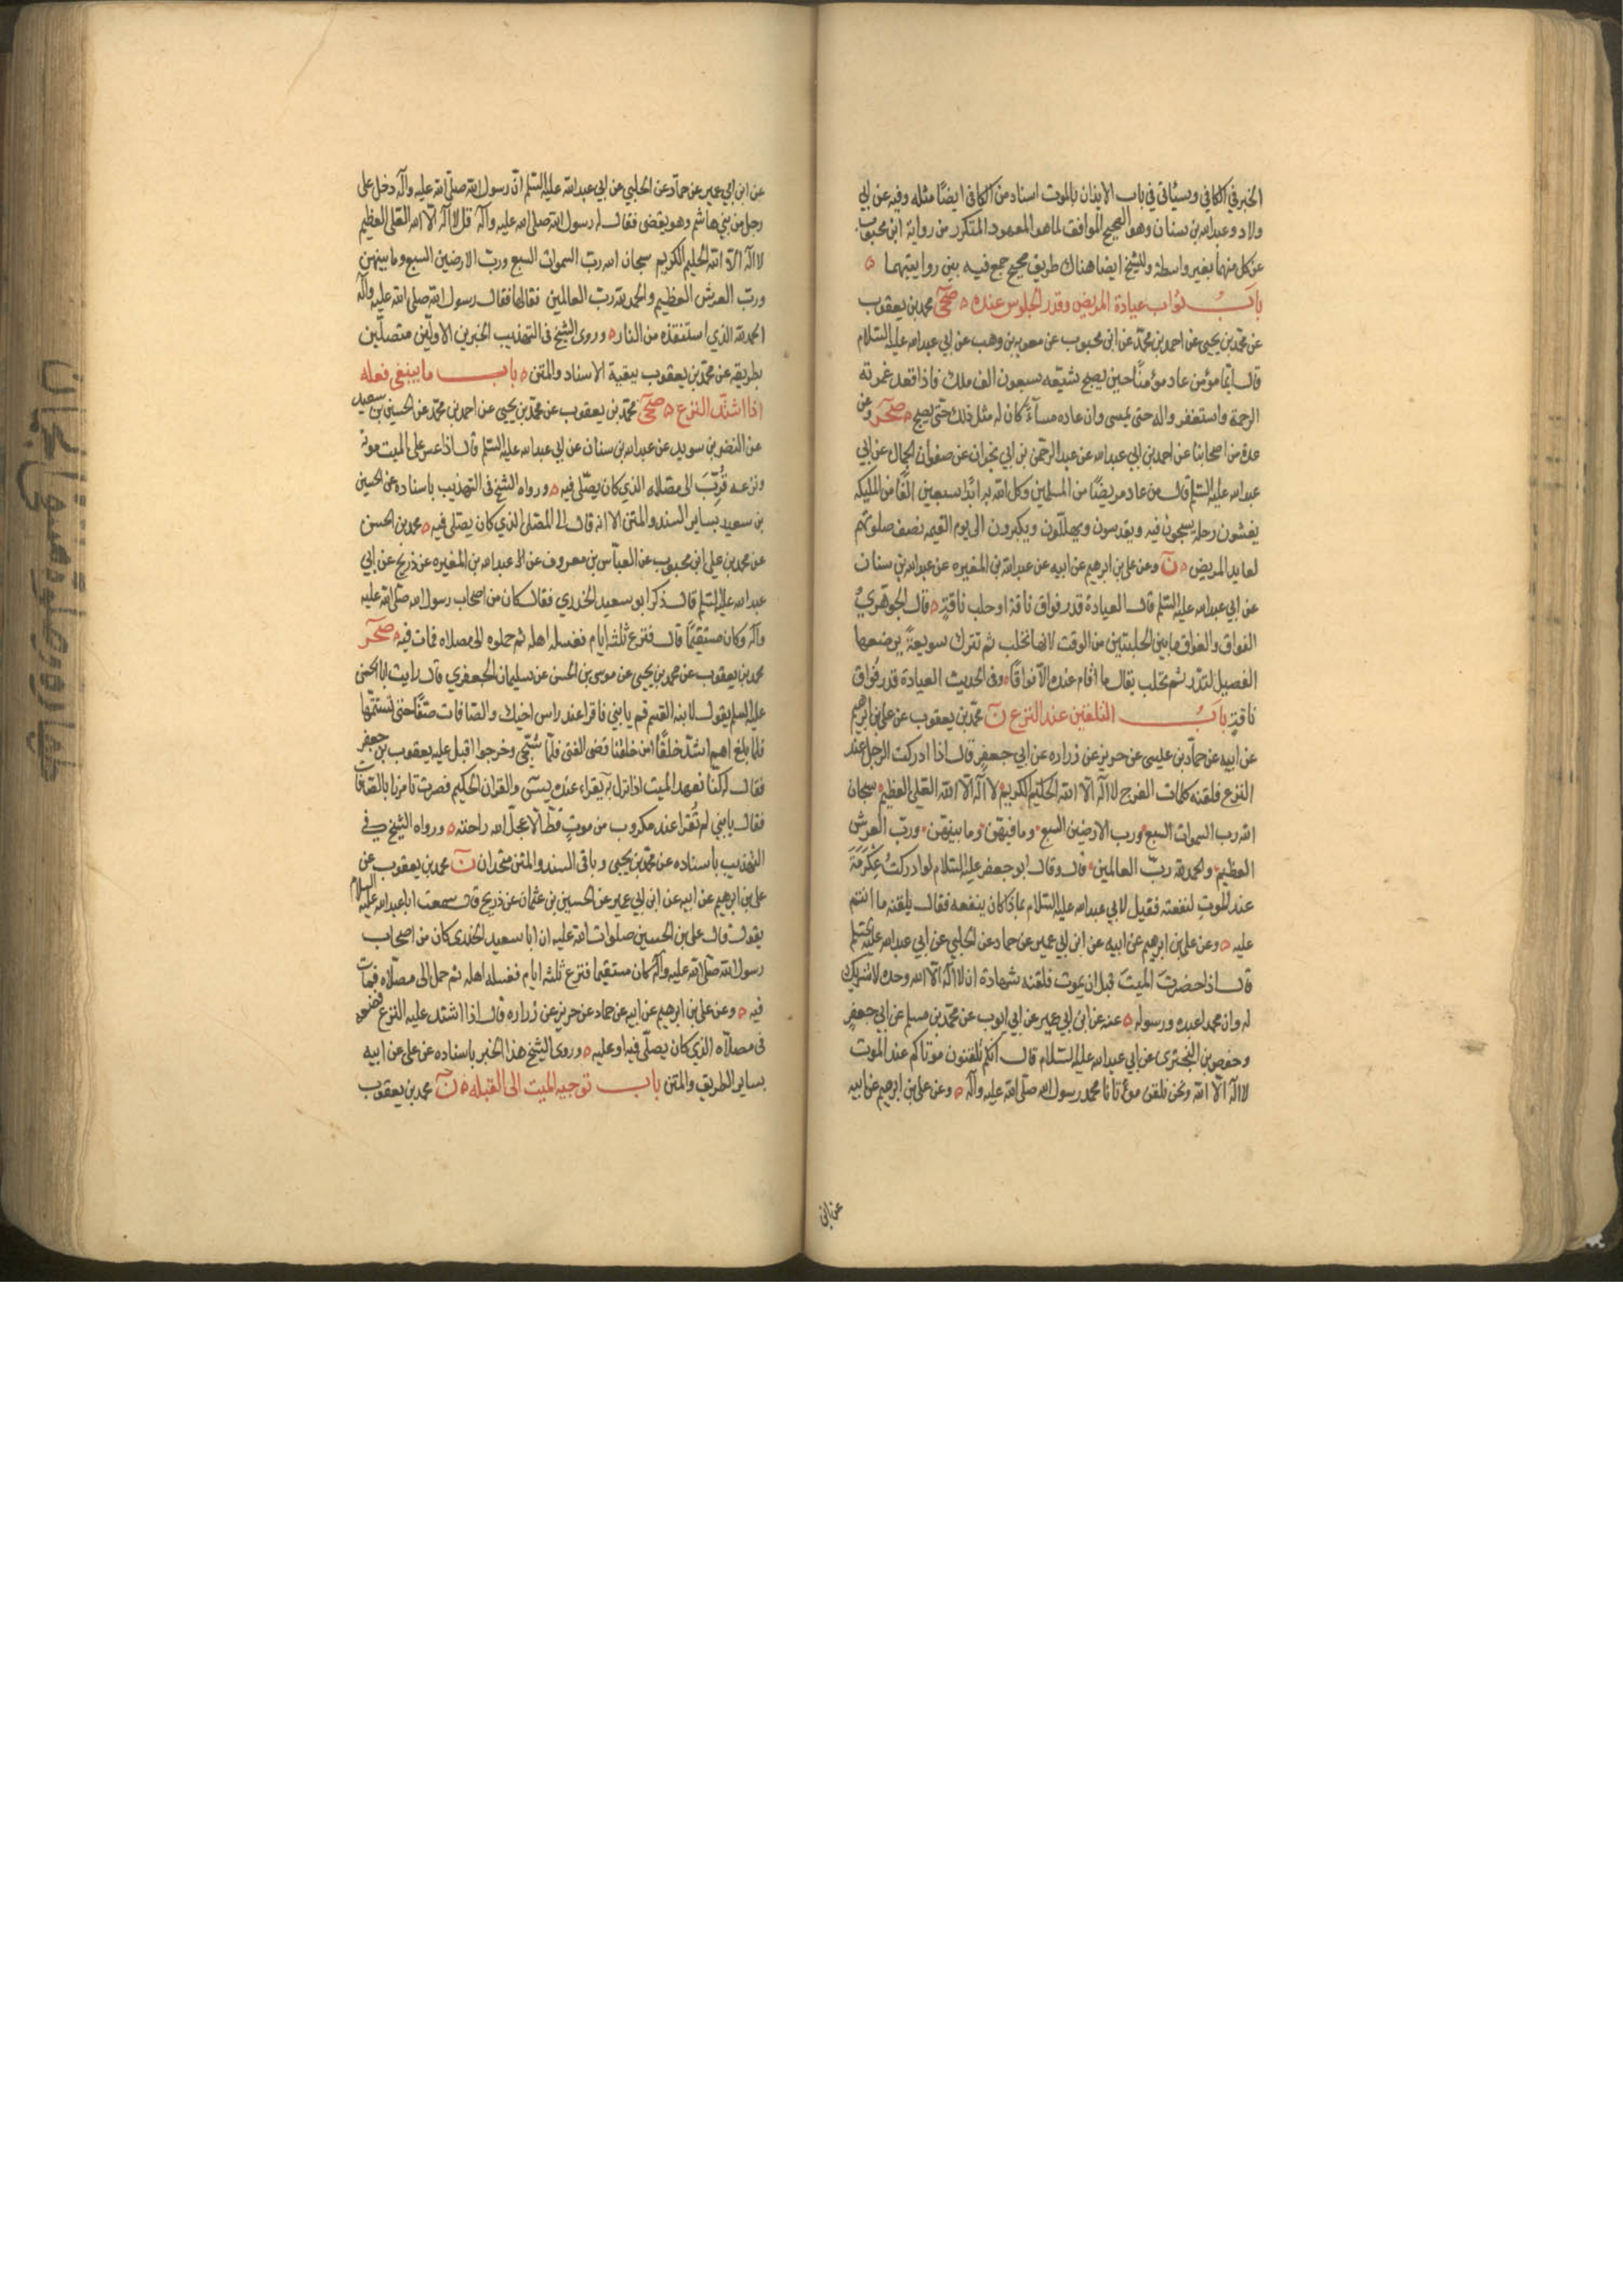 الخبر في الكافي وسيأتي في باب الايذان بالموت اسناد من الكافي ايضًا مثله وفيه عن ابي
ولاد وعبدالله بن سنان وهو الصحيح الموافق لما هو المعهود المتكرر من رواية ابن محبوب
عن كل منهما بغير واسطة وللشيخ ايضا هناك طريق صحيح جمع فيه بين روايتيهما ه
باب ثواب عيادة المريض وقدر الجلوس عنده ه صحي محمد بن يعقوب
عن محمد بن يحيى عن احمد بن محمد عن ابن محبوب عن معوية بن وهب عن ابي عبدالله عليه السلام
قال ايما مؤمن عاد مؤمنًا حين يصبح شيّعه سبعون الف ملك فاذا قعد غمرته
الرحمة واستغفروا له حتى يمسى وان عاده مساءً كان له مثل ذلك حتى يصبح ه صحر وعن
عدة من اصحابنا عن احمد بن ابي عبدالله عن عبد الرحمن بن ابي نجران عن صفوان الجمال عن ابي
عبدالله عليه السلم قال من عاد مريضًا من المسلمين وكل الله به ابدًا سبعين الفًا من الملئكة
يغشون رحله يسبحون فيه ويقدسون ويهللون ويكبرون الى يوم القيمه نصف صلوتهم
لعايد المريض ه ن وعن علي بن ابرهيم عن ابيه عن عبدالله بن المغيره عن عبدالله بن سنان
عن ابي عبدالله عليه السلم قال العيادة قدر فواق ناقة او حلب ناقةٍ ه قال الجوهريّ
الفواق والفواق ما بين الحلبتين من الوقت لانها تحلب ثم تترك سويعةً يرضعها
الفصيل لتدرّ ثم تحلب يقال ما اقام عنده الّا فواقًا وفي الحديث العيادة قدر فُواق
ناقةٍ باب التلقين عند النزع ن محمد بن يعقوب عن علي بن ابرهيم
عن ابيه عن حماد بن عيسى عن حريز عن زراره عن ابي جعفر قال اذا ادركت الرجل عند
النزع فلقنه كلمات الفرج لا اله الّا الله الحليم الكريم لا اله الّا الله العلي العظيم سبحان
الله رب السموات السبع ورب الارضين السبع وما فيهنّ وما بينهنّ وربّ العرش
العظيم والحمدلله ربّ العالمين قال وقال ابو جعفر عليه السلام لو ادركتُ عِكرَمَةَ
عند الموت لنفعته فقيل لابي عبدالله عليه السلام بماذا كان ينفعه فقال يلقنه ما انتم
عليه ه وعن علي بن ابرهيم عن ابيه عن ابن ابي عمير عن حماد عن الحلبي عن ابي عبدالله عليه السلم
قال اذا حضرتَ الميتَ قبل ان يموت فلقنه شهادة ان لا اله الّا الله وحده لا شريك
له وان محمدا عبده ورسوله ه عنه عن ابن ابي عمير عن ابي ايوب عن محمد بن مسلم عن ابي جعفرٍ
وحفص بن البختري عن ابي عبدالله عليه السلام قال انكم تلقنون موتاكم عند الموت
لا اله الّا الله ونحن نلقن موتانا محمد رسول الله صلى الله عليه وآله ه وعن علي بن ابرهيم عن ابيه
عن ابن
عن ابن ابي عمير عن حماد عن الحلبي عن ابي عبدالله عليه السلم انّ رسول الله صلى الله عليه وآله دخل على
رجل من بني هاشم وهو يقضى فقال له رسول الله صلى الله عليه وآله قل لا اله الّا الله العلي العظيم
لا اله الّا الله الحليم الكريم سبحان الله ربّ السموات السبع وربّ الارضين السبع وما بينهن
وربّ العرش العظيم والحمدلله ربّ العالمين فقالها فقال رسول الله صلى الله عليه وآله
الحمدلله الذي استنقذه من النار ه وروى الشيخ في التهذيب الخبرين الاولين متصلين
بطريقه عن محمد بن يعقوب ببقية الاسناد والمتن ه باب ما ينبغي فعله
اذا اشتدّ النزع ه صحي محمد بن يعقوب عن محمد بن يحيى عن احمد بن محمد عن الحسين بن سعيد
عن النضر بن سويد عن عبدالله بن سنان عن ابي عبدالله عليه السلم قال اذا عسر على الميت موته
ونزعه قُرّبَ الى مصلاه الذي كان يصلّي فيه ه ورواه الشيخ في التهذيب باسناده عن الحسين
بن سعيد بساير السند والمتن الا انه قال الى المصلى الذي كان يصلي فيه ه محمد بن الحسن
عن محمد بن علي ابن محبوب عن العباس بن معروف عن عبدالله بن المغيره عن ذريح عن ابي
عبدالله عليه السلم قال ذكر ابو سعيد الخدري فقال كان من اصحاب رسول الله صلى الله عليه
وآله وكان مستقيمًا قال فنزع ثلثه ايام فغسله اهله ثم حملوه الى مصلاه فمات فيه ه صحر
محمد بن يعقوب عن محمد بن يحيى عن موسى بن الحسن عن سليمان الجعفري قال رايت ابا الحسن
عليه السلم يقول لابنه القسم قم يا بني فاقرا عند راس اخيك والصافات صفًّا حتى تستتمّها
فلما بلغ اهم اشدّ خلقًا ام من خلقنا قضى الفتى فلمّا سُجّي وخرجوا اقبل عليه يعقوب بن جعفر
فقال له كنّا نعهد الميت اذا نزل به يقراء عنده يس والقران الحكيم فصرت تامرنا بالصافات
فقال يا بني لم تُقرأ عند مكروب من موتٍ قطّ الّا عجّل الله راحته ه ورواه الشيخ في
التهذيب باسناده عن محمد بن يحيى وباقي السند والمتن متحدان ن محمد بن يعقوب عن
علي بن ابرهيم عن ابيه عن ابن ابي عمير عن الحسين بن عثمان عن ذريح قال سمعت اباعبدالله عليه السلام
يقول قال علي بن الحسين صلوات الله عليه ان ابا سعيد الخدري كان من اصحاب
رسول الله صلى الله عليه وآله كان مستقيما فنزع ثلثه ايام فغسله اهله ثم حمل الى مصلاه فمات
فيه ه وعن علي بن ابرهيم عن ابيه عن حماد عن حريز عن زراره قال اذا اشتد عليه النزع فضعه
في مصلاه الذي كان يصلّي فيه او عليه ه وروى الشيخ هذا الخبر باسناده عن علي عن ابيه
بساير الطريق والمتن باب توجيه الميت الى القبله ه ن محمد بن يعقوب